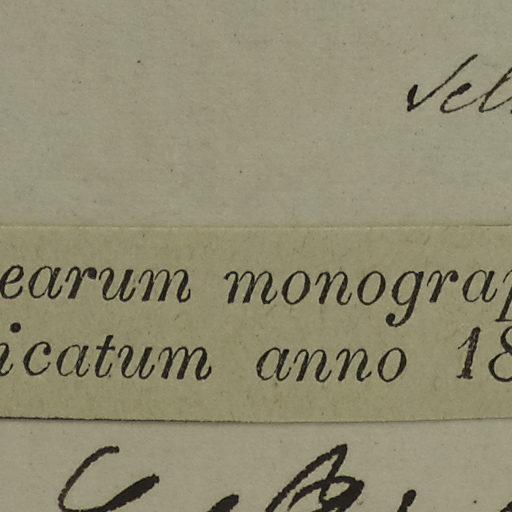 Sel
earum monograp
icatum anno 18